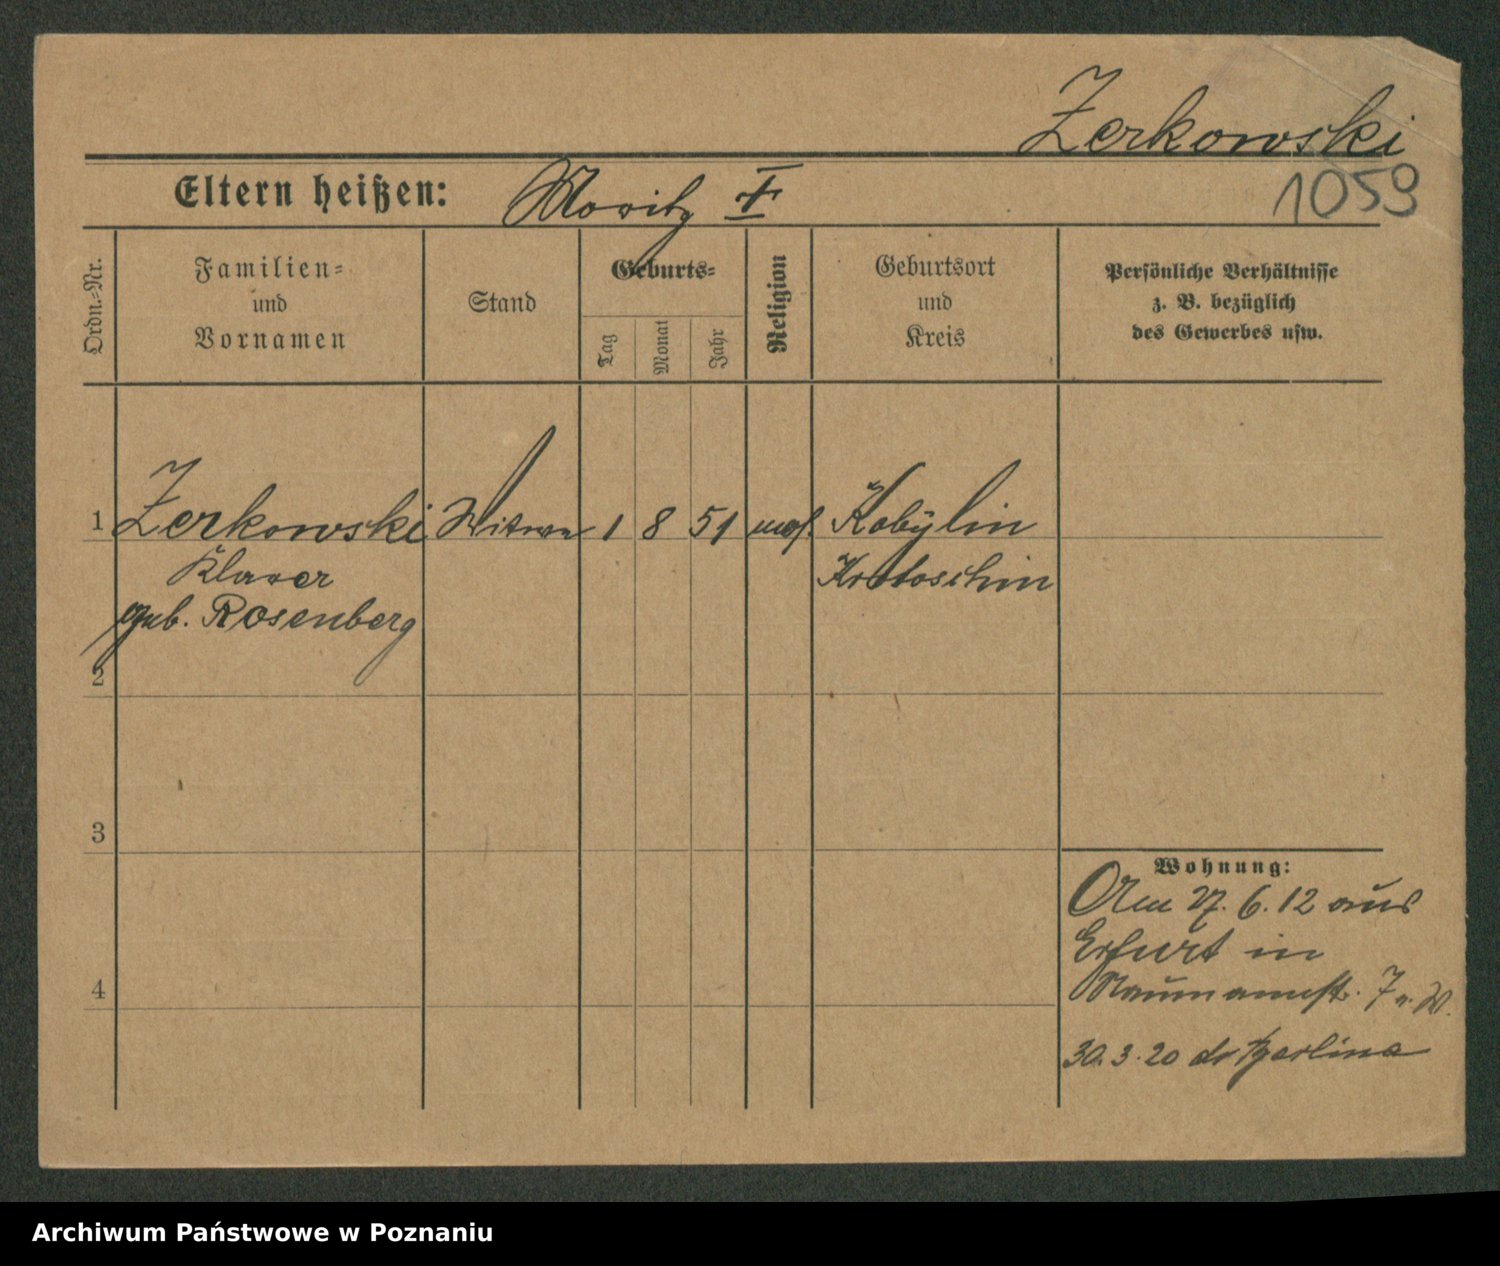 Zerkowski
Eltern heißen: Moritz †
1059
Ordn.-Nr.
Familien-
und
Vornamen
Stand
Geburts-
Tag
Monat
Jahr
Religion
Geburtsort
und
Kreis
Persönliche Verhältnisse
z. B. bezüglich
des Gewerbes usw.
1 Zerkowski Witwe 1 8 51 mos. Kobylin
Krotoschin
geb. Rosenberg
2
3
4
Wohnung:
Am 27. 6. 12 aus
Erfurt in
Naumannstr. 7
30. 3. 20
Archiwum Państwowe w Poznaniu